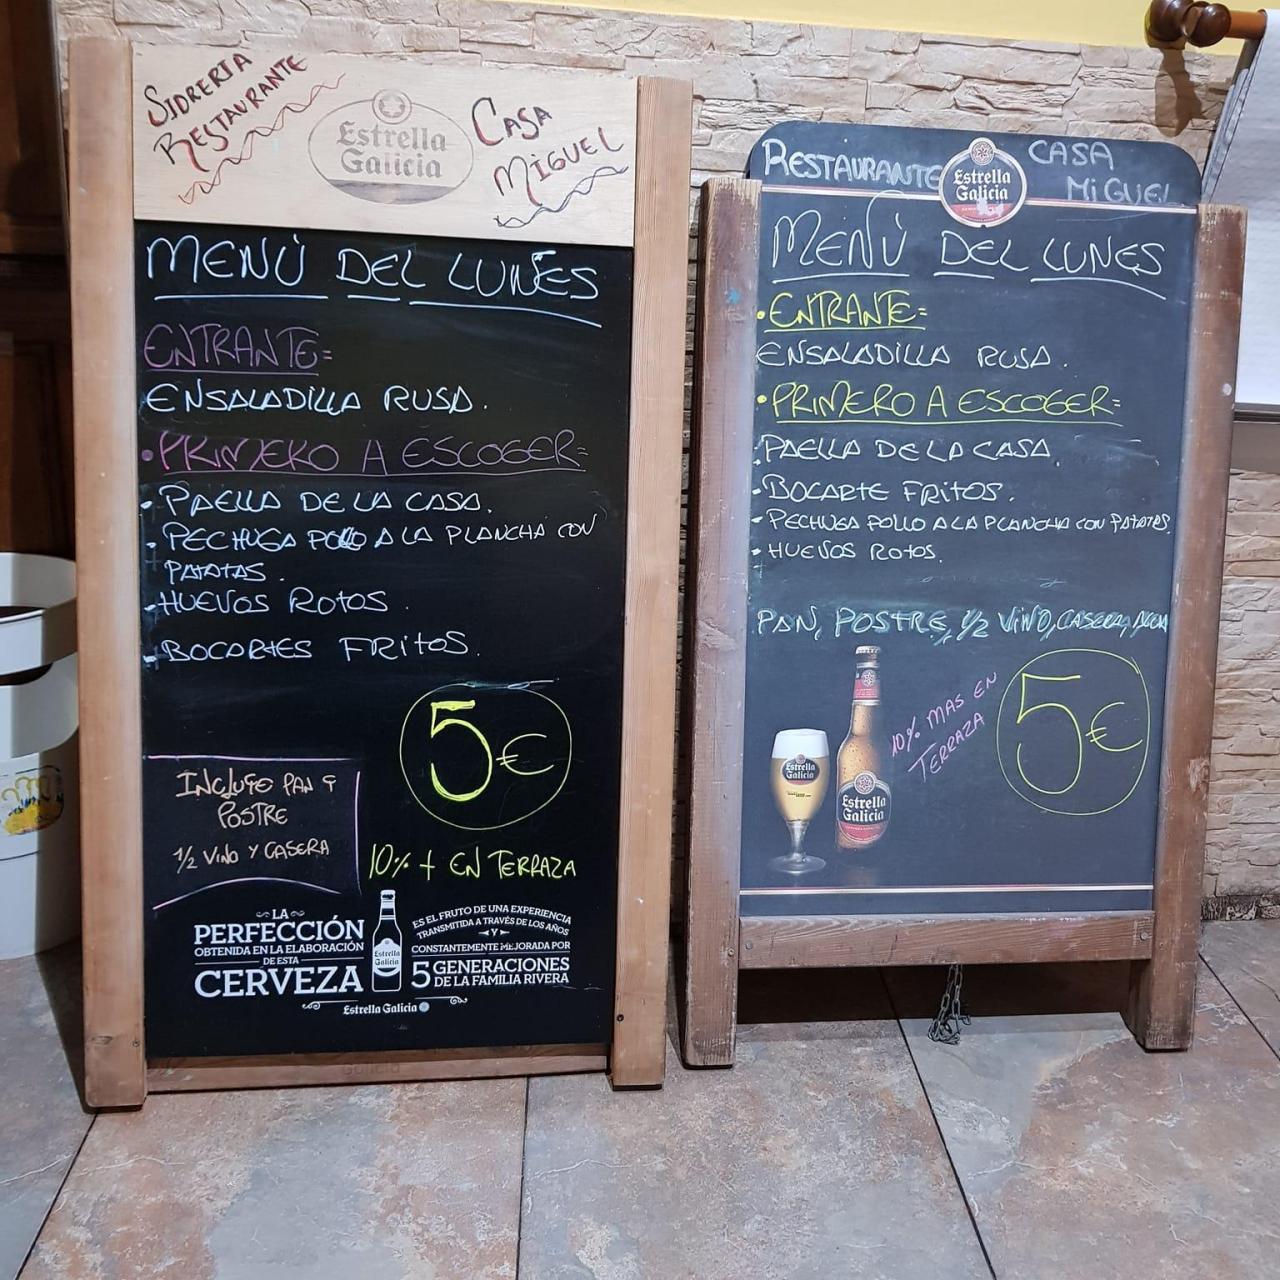 SIDRERIA
RESTAURANTE
Estrella
Galicia
CASA
MIGUEL
MENÚ DEL LUNES
ENTRANTE=
ENSALADILLA RUSA.
·PRIMERO A ESCOGER=
· PAELLA DE LA CASA.
· PECHUGA POLLO A LA PLANCHA CON
PATATAS.
·HUEVOS ROTOS.
·BOCARTES FRITOS.
5€
INCLUYE PAN Y
POSTRE
1/2 VINO Y CASERA
10% + EN TERRAZA
LA
PERFECCIÓN
OBTENIDA EN LA ELABORACIÓN
DE ESTA
CERVEZA
Estrella
Galicia
ES EL FRUTO DE UNA EXPERIENCIA
TRANSMITIDA A TRAVÉS DE LOS AÑOS
Y
CONSTANTEMENTE MEJORADA POR
5 GENERACIONES
DE LA FAMILIA RIVERA
Estrella Galicia
RESTAURANTE
Estrella
Galicia
CASA
MIGUEL
MENÚ DEL LUNES
·ENTRANTE=
ENSALADILLA RUSA.
·PRIMERO A ESCOGER=
·PAELLA DE LA CASA.
·BOCARTE FRITOS.
·PECHUGA POLLO A LA PLANCHA CON PATATAS.
·HUEVOS ROTOS.
PAN, POSTRE, 1/2 VINO, CASERA, AGUA
10% MAS EN
TERRAZA
5€
Estrella
Galicia
Estrella
Galicia